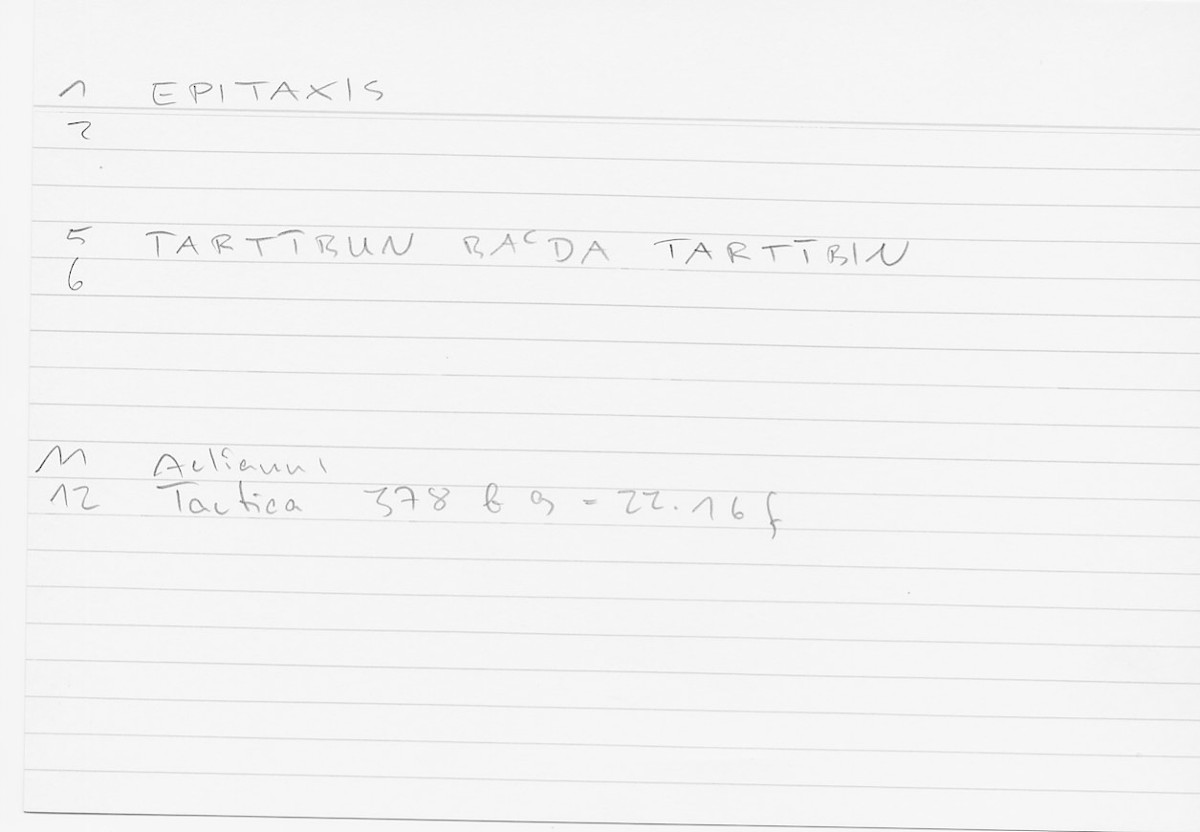 1 EPITAXIS
2
5 TARTĪBUN BAʿDA TARTĪBIN
6
11 Aeliani
12 Tactica 378 b 9 = 22.16 f